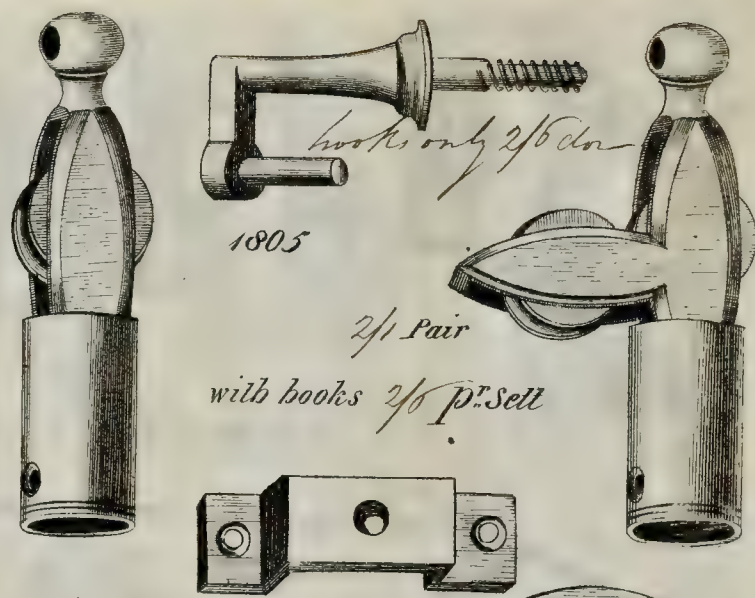 hooks only 2/6 doz
1805
2/1 Pair
with hooks 2/6 pr. Sett